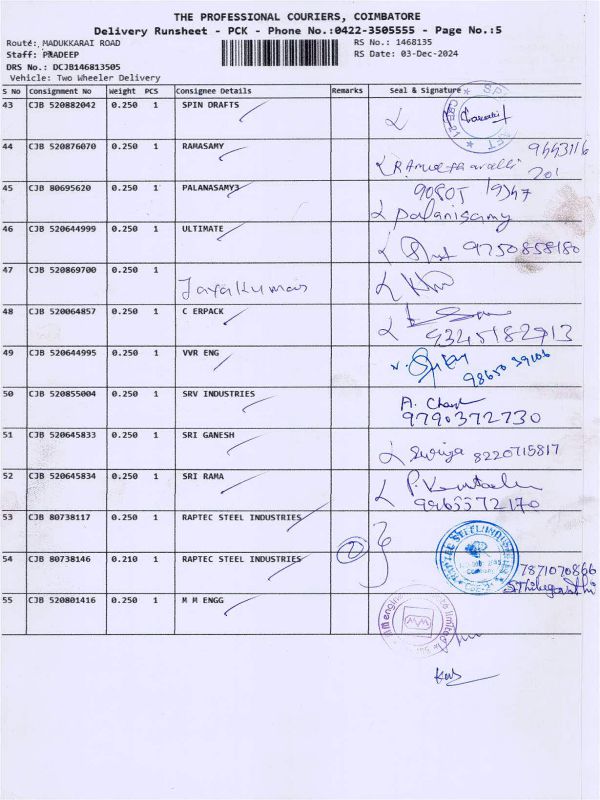 THE PROFESSIONAL COURIERS, COIMBATORE
Delivery Runsheet - PCK - Phone No.:0422-3505555 - Page No.:5
Route: MADUKKARAI ROAD RS No.: 1468135
Staff: PRADEEP RS Date: 03-Dec-2024
DRS No.: DCJB146813505
Vehicle: Two Wheeler Delivery
S No Consignment No Weight PCS Consignee Details Remarks Seal & Signature
43 CJB 520882042 0.250 1 SPIN DRAFTS
44 CJB 520876070 0.250 1 RAMASAMY
45 CJB 80695620 0.250 1 PALANASAMY3
Palanisamy
46 CJB 520644999 0.250 1 ULTIMATE 9750858180
47 CJB 520869700 0.250 1 Jayakumar
48 CJB 520064857 0.250 1 C ERPACK
9345182913
49 CJB 520644995 0.250 1 VVR ENG
98650 39106
50 CJB 520855004 0.250 1 SRV INDUSTRIES
9790372730
51 CJB 520645833 0.250 1 SRI GANESH Suriya 8220715817
52 CJB 520645834 0.250 1 SRI RAMA
9865572170
53 CJB 80738117 0.250 1 RAPTEC STEEL INDUSTRIES
2
54 CJB 80738146 0.210 1 RAPTEC STEEL INDUSTRIES 7871070866
55 CJB 520801416 0.250 1 M M ENGG